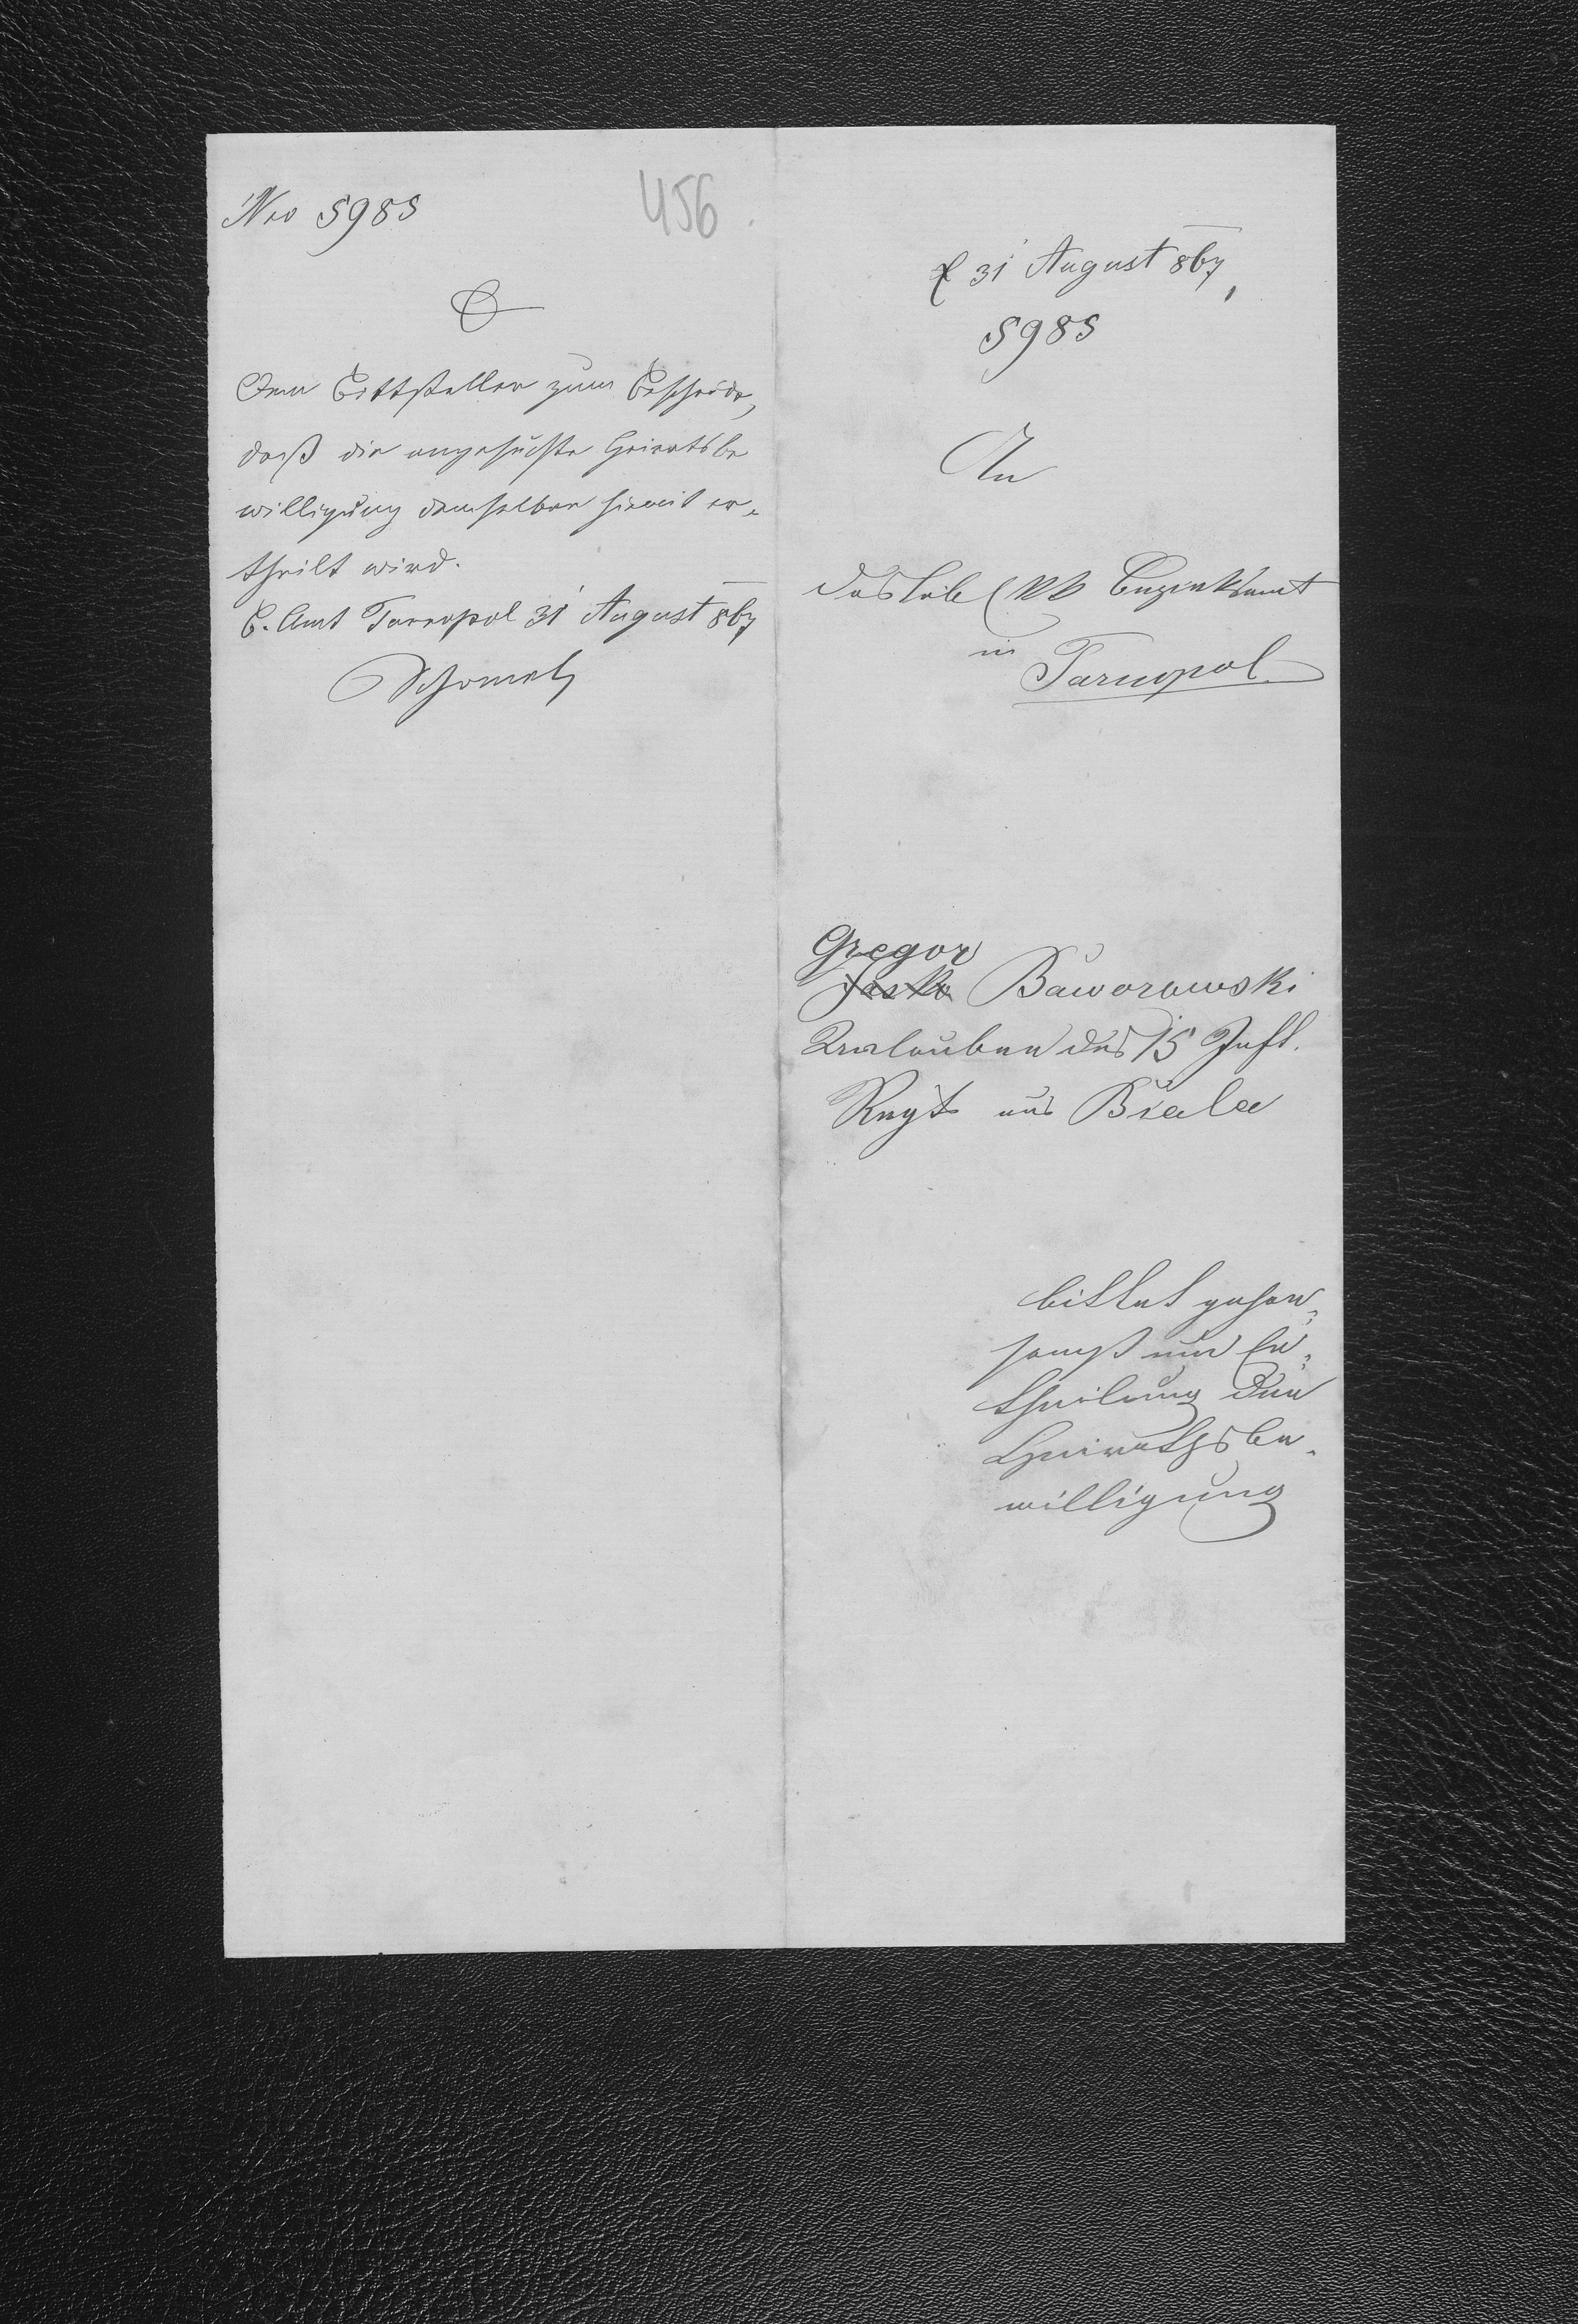 Nro 5985
456
B
Dem Bittsteller zum Bescheide,
daß die angesuchte Heiratsbe
willigung demselben hiemit er-
theilt wird.
B. Amt Tarnopol 31 August 867
31 August 867
5985
An
das löbl. kk Bezirksamt
in
Tarnopol
Gregor
Jasko Baworowski
Urlauber des 15 Inft.
Regts aus Biala
bittet gehor-
samst um Er-
theilung der
Heirathsbe-
willigung